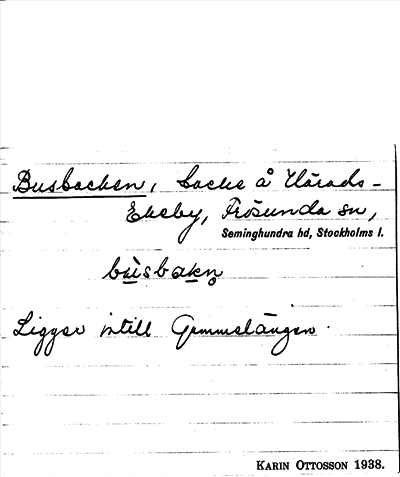 Busbacken, backe å Härads-
Ekeby, Frösunda sn,
Seminghundra hd, Stockholms l.
bùsbakn̥
Ligger intill Gammelängen.
KARIN OTTOSSON 1938.